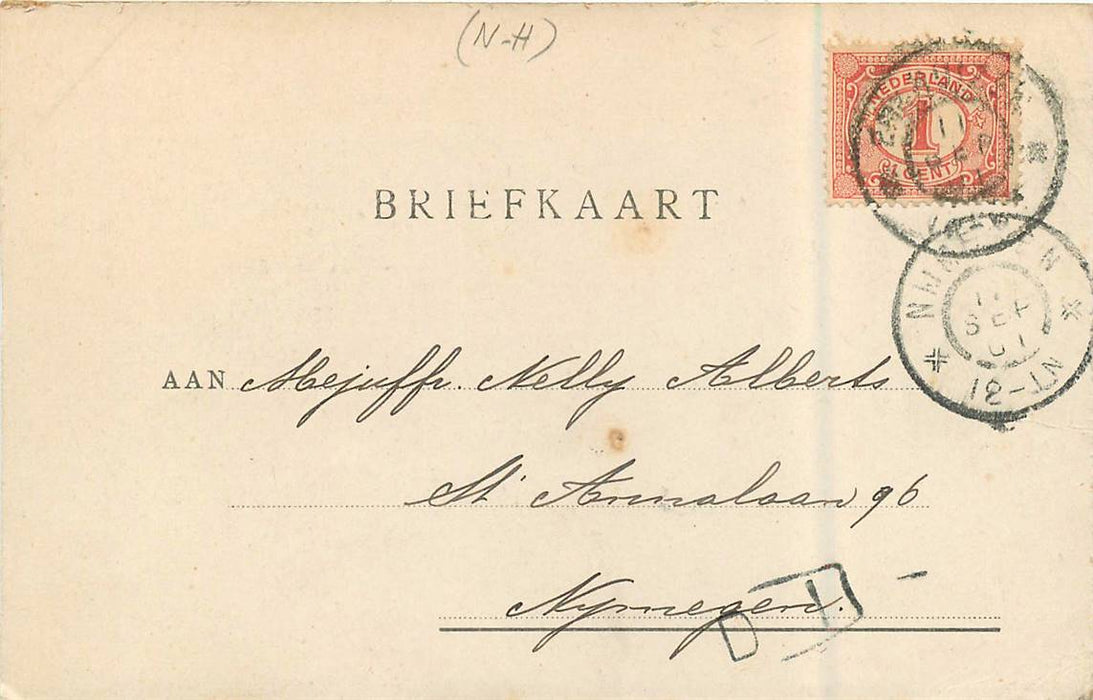 (N-H)
NEDERLAND
1
CENT
11
BRIEFKAART
NIJMEGEN
11
SEP
01
12-1N
AAN Mejuffr. Nelly Alberts
St Annalaan 96
Nymegen.
D I